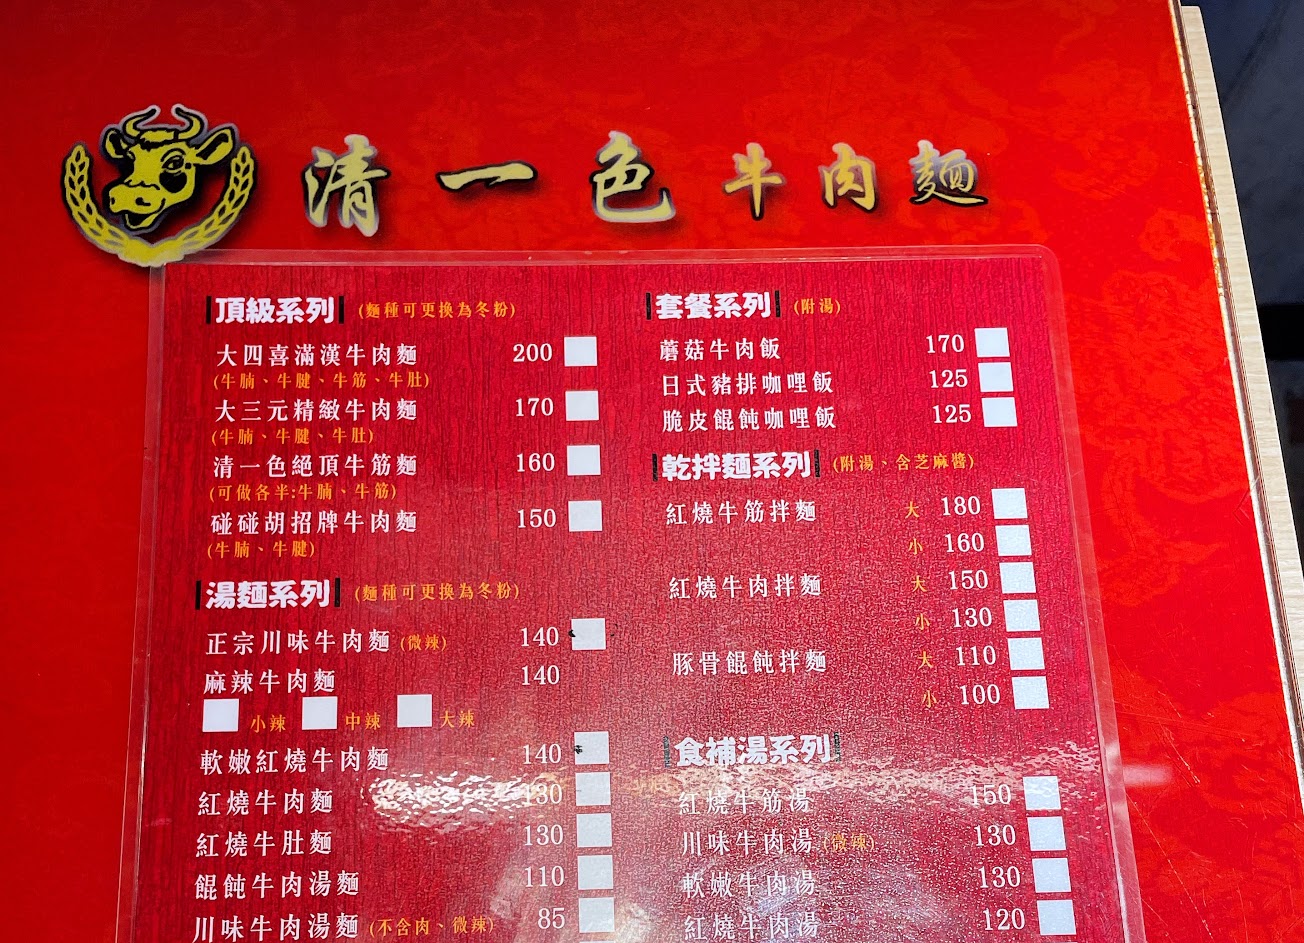 清一色牛肉麵
頂級系列 (麵種可更換為冬粉)
大四喜滿漢牛肉麵 200
(牛腩、牛腱、牛筋、牛肚)
大三元精緻牛肉麵 170
(牛腩、牛腱、牛肚)
清一色絕頂牛筋麵 160
(可做各半:牛腩、牛筋)
碰碰胡招牌牛肉麵 150
(牛腩、牛腱)
湯麵系列 (麵種可更換為冬粉)
正宗川味牛肉麵 (微辣) 140
麻辣牛肉麵 140
小辣 中辣 大辣
軟嫩紅燒牛肉麵 140
紅燒牛肉麵 130
紅燒牛肚麵 130
餛飩牛肉湯麵 110
川味牛肉湯麵 (不含肉、微辣) 85
套餐系列 (附湯)
蘑菇牛肉飯 170
日式豬排咖哩飯 125
脆皮餛飩咖哩飯 125
乾拌麵系列 (附湯、含芝麻醬)
紅燒牛筋拌麵 大 180
小 160
紅燒牛肉拌麵 大 150
小 130
豚骨餛飩拌麵 大 110
小 100
食補湯系列
紅燒牛筋湯 150
川味牛肉湯 (微辣) 130
軟嫩牛肉湯 130
紅燒牛肉湯 120